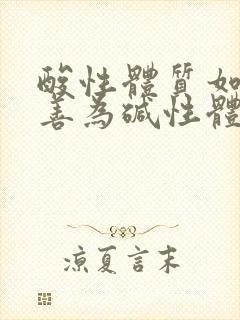 酸性體質如
善為碱性體
涼夏言末